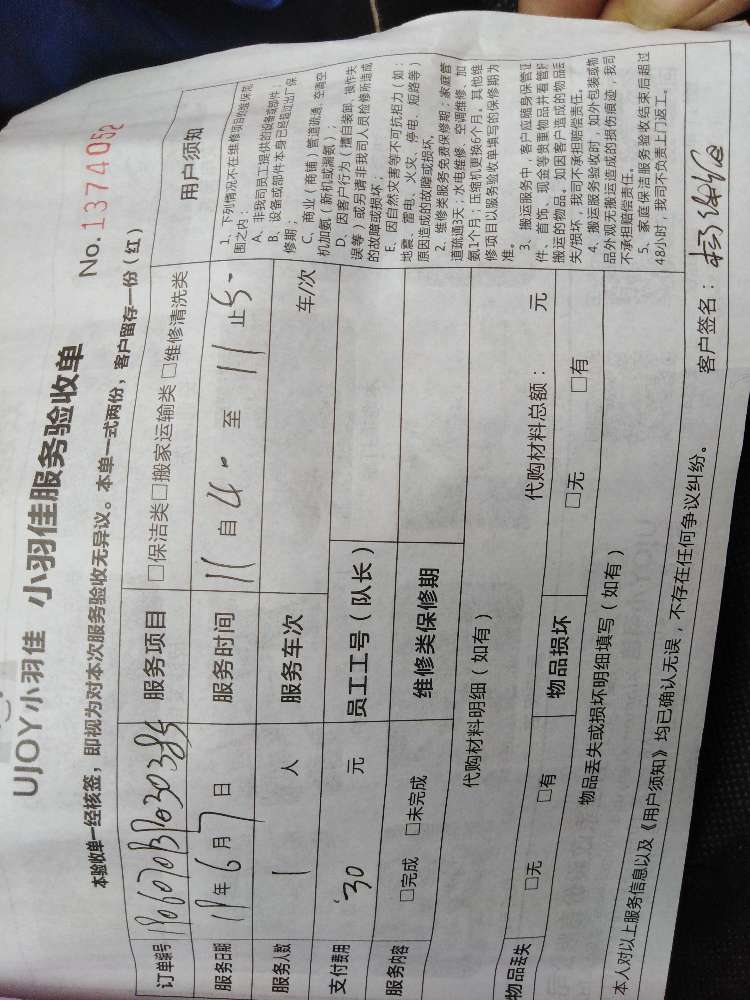 UJOY小羽佳 小羽佳服务验收单
No.1374052
本验收单一经核签，即视为对本次服务验收无异议。本单一式两份，客户留存一份（红）
订单编号
服务项目 □保洁类□搬家运输类 □维修清洗类
服务日期 18年6月7日
服务时间 11 自 4 至 11 止 5
服务人数 1 人
服务车次 车/次
支付费用 30 元
员工工号（队长）
服务内容 □完成 □未完成
维修类保修期
代购材料明细（如有）
代购材料总额： 元
物品丢失 □无 □有
物品损坏 □无 □有
物品丢失或损坏明细填写（如有）
本人对以上服务信息以及《用户须知》均已确认无误，不存在任何争议纠纷。
客户签名：
用户须知
1、下列情况不在维修项目的维保范
围之内：
A、非我司员工提供的设备或部件；
B、设备或部件本身已经超过出厂保
修期；
C、商业（商铺）管道疏通、空调空
机加氨（新机或漏氨）；
D、因客户行为（擅自装卸、操作失
误等）或另请非我司人员检修所造成
的故障或损坏；
E、因自然灾害等不可抗拒力（如：
地震、雷电、火灾、停电、短路等）
原因造成的故障或损坏。
2、维修类服务免费保修期：家庭管
道疏通3天；水电维修、空调维修、加
氨1个月；压缩机更换6个月。其他维
修项目以服务验收单填写的保修期为
准。
3、搬运服务中，客户应随身保管证
件、首饰、现金等贵重物品并看管好
搬运的物品。如因客户造成的物品丢
失/损坏，我司不承担赔偿责任。
4、搬运服务验收时，如外包装或物
品外观无搬运造成的损伤痕迹，我司
不承担赔偿责任。
5、家庭保洁服务验收结束后超过
48小时，我司不负责上门返工。